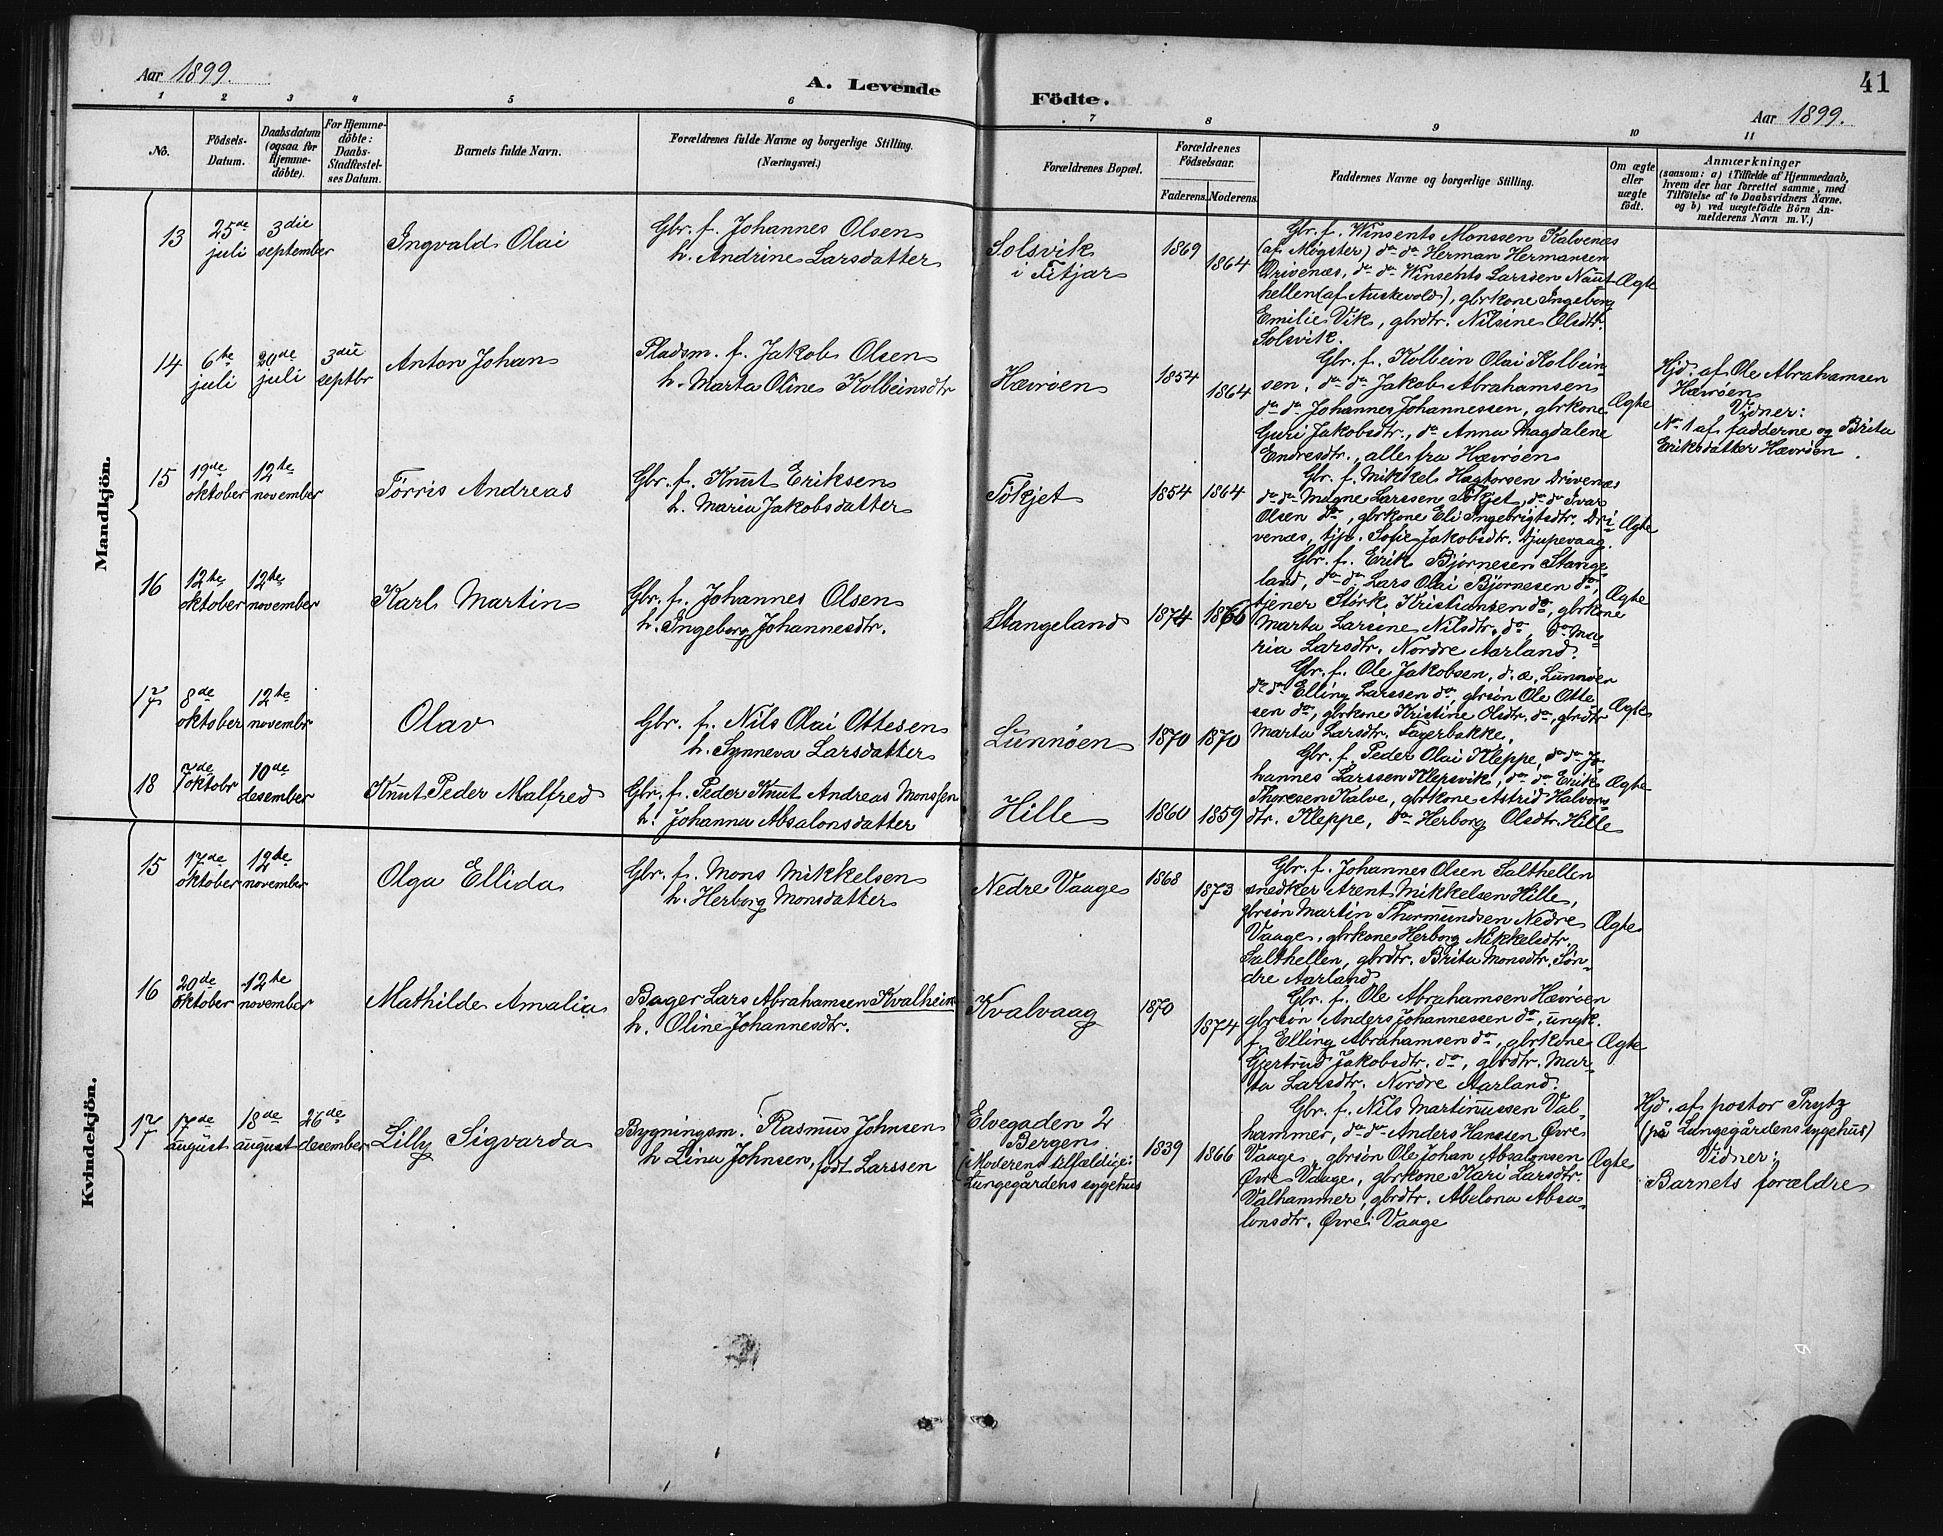 41
Aar 1899.
A. Levende Födte.
Aar 1899.
1 2 3 4 5 6 7 8 9 10 11
No.
Födsels-
Datum.
Daabsdatum
(ogsaa for
Hjemme-
döbte).
For Hjemme-
döbte:
Daabs-
Stadfæstel-
ses Datum.
Barnets fulde Navn.
Forældrenes fulde Navne og borgerlige Stilling.
(Næringsvei.)
Forældrenes Bopæl.
Forældrenes
Födselsaar.
Faderens. Moderens.
Faddernes Navne og borgerlige Stilling.
Om ægte
eller
uægte
födt.
Anmærkninger
(saasom: a) i Tilfælde af Hjemmedaab,
hvem der har forrettet samme, med
Tilföielse af to Daabsvidners Navne.
og b) ved uægtefödte Börn An-
melderens Navn m. V.)
Mandkjön.
13
25de
juli
3die
september
Ingvald Olai
Gbr. f. Johannes Olsen
h. Andrine Larsdatter
Solsvik
i Fitjar
1869
1864
Gbr. f. Winsents Monssen Kalvenæs
(af Møgster) do do Herman Hermansen
Drivenæs, do do Winsents Larssen Naut-
hellen (af Austevold), gbrkone Ingeborg
Emilie Vik, gbrdtr. Nilsine Olsdtr.
Solsvik.
Ægte
14
6te
juli
20de
juli
3die
septbr
Anton Johan
Pladsm. f. Jakob Olsen
h. Marta Oline Kolbeinsdtr
Hævrøen
1854
1864
Gbr. f. Kolbein Olai Kolbein-
sen, do do Jakob Abrahamsen
do do Johannes Johannessen, gbrkone
Guri Jakobsdtr., do Anna Magdalene
Endresdtr., alle fra Hævrøen
Ægte
Hjd. af Ole Abrahamsen
Hævrøen
Vidner:
No 1 af fadderne og Brita
Eriksdatter Hævrøen.
15
19de
oktober
12te
november
Tørris Andreas
Gbr. f. Knut Eriksen
h. Maria Jakobsdatter
Tøkjet
1854
1864
Gbr. f. Mikkel Hagtorsen Drivenæs
do do Magne Larssen Tøkjet, do do Ivar
Olsen do, gbrkone Eli Ingebrigtsdtr. Dri-
venæs, tjp. Sofie Jakobsdtr. Djupevaag.
Ægte
16
12te
oktober
12te
november
Karl Martin
Gbr. f. Johannes Olsen
h. Ingeborg Johannesdtr.
Stangeland
1874
1866
Gbr. f. Erik Bjørnesen Stange-
land, do do Lars Olai Bjørnesen do,
tjener Størk Kristiansen do, gbrkone
Marta Larsine Nilsdtr. do, do Ma-
ria Larsdtr. Nordre Aarland.
Ægte
17
8de
oktober
12te
novembr
Olav
Gbr. f. Nils Olai Ottesen
h. Synneva Larsdatter
Lunnøen
1870
1870
Gbr. f. Ole Jakobsen, d. æ. Lunnøen
do do Elling Larssen do, gbrsøn Ole Otte-
sen do, gbrkone Kristine Olsdtr. do, gbrdtr
Marta Larsdtr. Fagerbakke.
Ægte
18
7de
oktobr
10de
desember
Knut Peder Malfred
Gbr. f. Peder Knut Andreas Monssen
h. Johanna Absalonsdatter
Hille
1860
1859
Gbr. f. Peder Olai Kleppe, do do Jo-
hannes Larssen Klepsvik, do do Erik
Thoresen Kalve, gbrkone Astrid Halvors-
dtr. Kleppe, do Herborg Olsdtr. Hille
Ægte
Kvindekjön.
15
17de
oktober
12te
november
Olga Ellida
Gbr. f. Mons Mikkelsen
h. Herborg Monsdatter
Nedre Vaage
1868
1873
Gbr. f. Johannes Olsen Salthellen
snedker Arent Mikkelsen Hille,
gbrsøn Martin Thormundsen Nedre
Vaage, gbrkone Herborg Mikkelsdtr.
Salthellen, gbrdtr. Brita Monsdtr. Søn-
dre Aarland
Ægte
16
20de
oktober
12te
november
Mathilde Amalia
Bager Lars Abrahamsen Kvalheim
h. Oline Johannesdtr.
Kvalvaag
1870
1874
Gbr. f. Ole Abrahamsen Hævrøen
gbrsøn Anders Johannessen do, ungk.
f. Elling Abrahamsen do, gbrkone
Gjertrud Jakobsdtr. do, gbrdtr. Mar-
ta Larsdtr. Nordre Aarland.
Ægte
17
17de
august
18de
august
26de
desember
Lilly Sigvarda
Bygningsm. Rasmus Johnsen
h. Lina Johnsen, født Larssen
Elvegaden 2
Bergen
(Moderens tilfældige:
Lungegårdens sygehus
1839
1866
Gbr. f. Nils Martinussen Val-
hammer, do do Anders Hanssen Øvre
Vaage, gbrsøn Ole Johan Absalonsen
Øvre Vaage, gbrkone Kari Larsdtr.
Valhammer, gbrdtr. Abelona Absa-
lonsdtr. Øvre Vaage
Ægte
Hjd. af pastor Prytz
(på Lungegårdens sygehus)
Vidner:
Barnets forældre